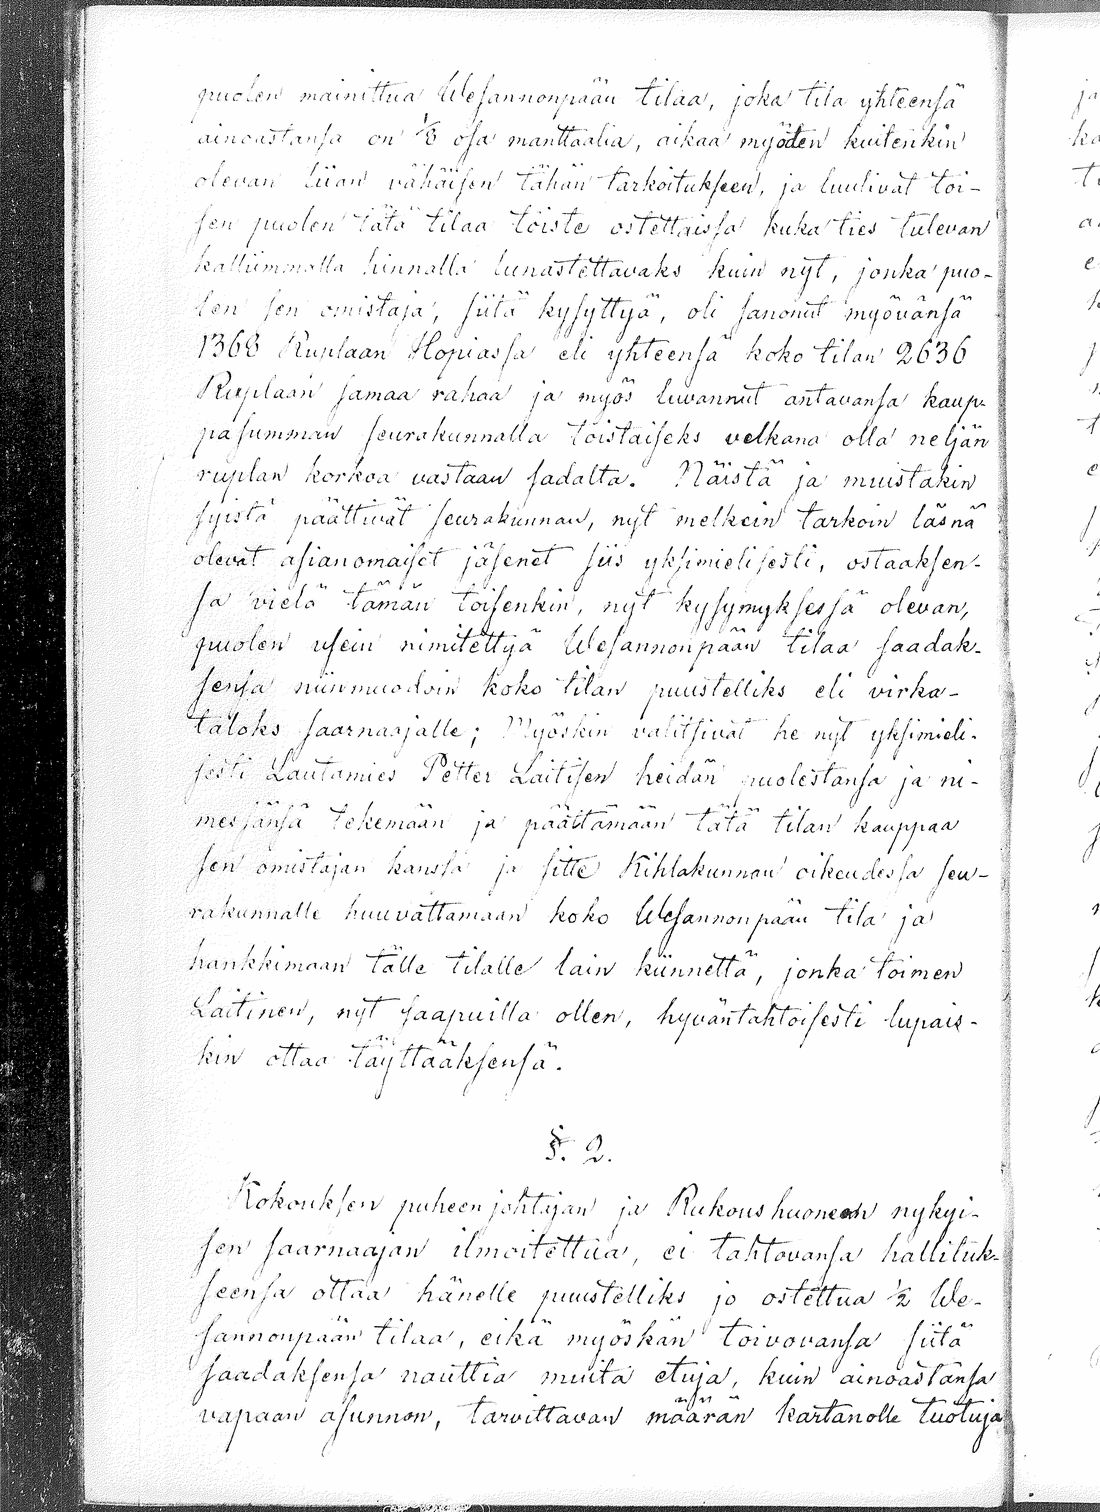 puolen mainittua Wesannonpään tilaa, joka tila yhteensä
ainoastansa on 1/8 osa manttaalia, aikaa myöden kuitenkin
olevan liian vähäisen tähän tarkoitukseen, ja luulivat toi-
sen puolen tätä tilaa toiste ostettaissa kuka ties tulevan
kalliimmalla hinnalla lunastettavaks kuin nyt, jonka puo-
len sen omistaja, siitä kysyttyä, oli sanonut myövänsä
1368 Ruplaan Hopiassa eli yhteensä koko tilan 2636
Ruplaan samaa rahaa ja myös luvannut antavansa kaup-
pasumman seurakunnalla toistaiseks velkana olla neljän
ruplan korkoa vastaan sadalta. Näistä ja muistakin
syistä päättivät seurakunnan, nyt melkein tarkoin läsnä
olevat asianomaiset jäsenet siis yksimielisesti, ostaaksen-
sa vielä tämän toisenkin, nyt kysymyksessä olevan,
puolen usein nimitettyä Wesannonpään tilaa saadak-
sensa niinmuodoin koko tilan puustelliks eli virka-
taloks saarnaajalle; Myöskin valitsivat he nyt yksimieli-
sesti Lautamies Petter Laitisen heidän puolestansa ja ni-
messänsä tekemään ja päättämään tätä tilan kauppaa
sen omistajan kanssa ja sitte Kihlakunnan oikeudessa seu-
rakunnalle huuvattamaan koko Wesannonpään tila ja
hankkimaan tälle tilalle lain kiinnettä, jonka toimen
Laitinen, nyt saapuilla ollen, hyväntahtoisesti lupais-
kin ottaa täyttääksensä.
§. 2.
Kokouksen puheenjohtajan ja Rukoushuoneen nykyi-
sen saarnaajan ilmoitettua, ei tahtovansa hallituk-
seensa ottaa hänelle puustelliks jo ostettua 1/2 We-
sannonpään tilaa, eikä myöskän toivovansa siitä
saadaksensa nauttia muita etuja, kuin ainoastansa
vapaan asunnon, tarvittavan määrän kartanolle tuotuja